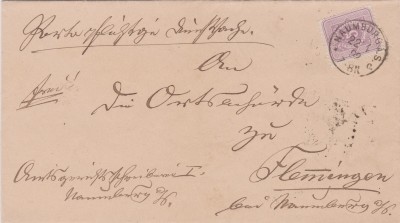 Portopflichtige Dienstsache.
NAUMBURG A. S.
An
frei!
Die Ortsbehörde
zu
Flemingen
bei Naumburg a/S.
Amtsgerichtsschreiberei I.
Naumburg a/S.